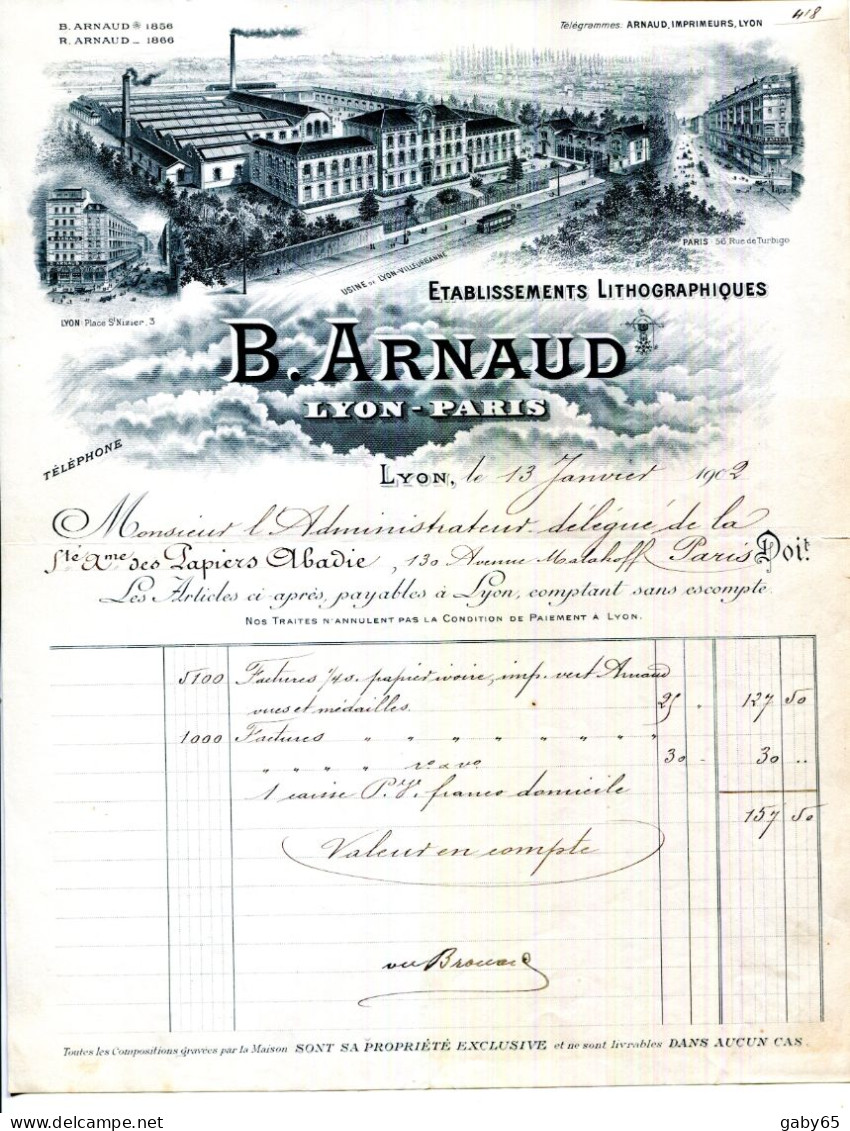 B. ARNAUD 1856
R. ARNAUD _ 1866
Télégrammes. ARNAUD, IMPRIMEURS, LYON
418
PARIS 56 Rue de Turbigo
USINE DE LYON-VILLEURBANNE
LYON Place St Nizier, 3
ETABLISSEMENTS LITHOGRAPHIQUES
B. ARNAUD
LYON-PARIS
TÉLÉPHONE
LYON, le 13 Janvier 1902
Monsieur l'Administrateur délégué de la
Sté Ame des Papiers Abadie, 130 Avenue Malakoff Paris Doit
Les Articles ci-après, payables à Lyon, comptant sans escompte.
NOS TRAITES N'ANNULENT PAS LA CONDITION DE PAIEMENT A LYON.
5100 Factures 1/40. papier ivoire, imp. vert Arnaud
vues et médailles. 25 " 127 50
1000 Factures " " " " " " "
" " " " ro & vo 30 - 30 ..
1 caisse Pge franco domicile
157 50
Valeur en compte
vu
Toutes les Compositions gravées par la Maison SONT SA PROPRIÉTÉ EXCLUSIVE et ne sont livrables DANS AUCUN CAS.
delcampe.net
gaby65